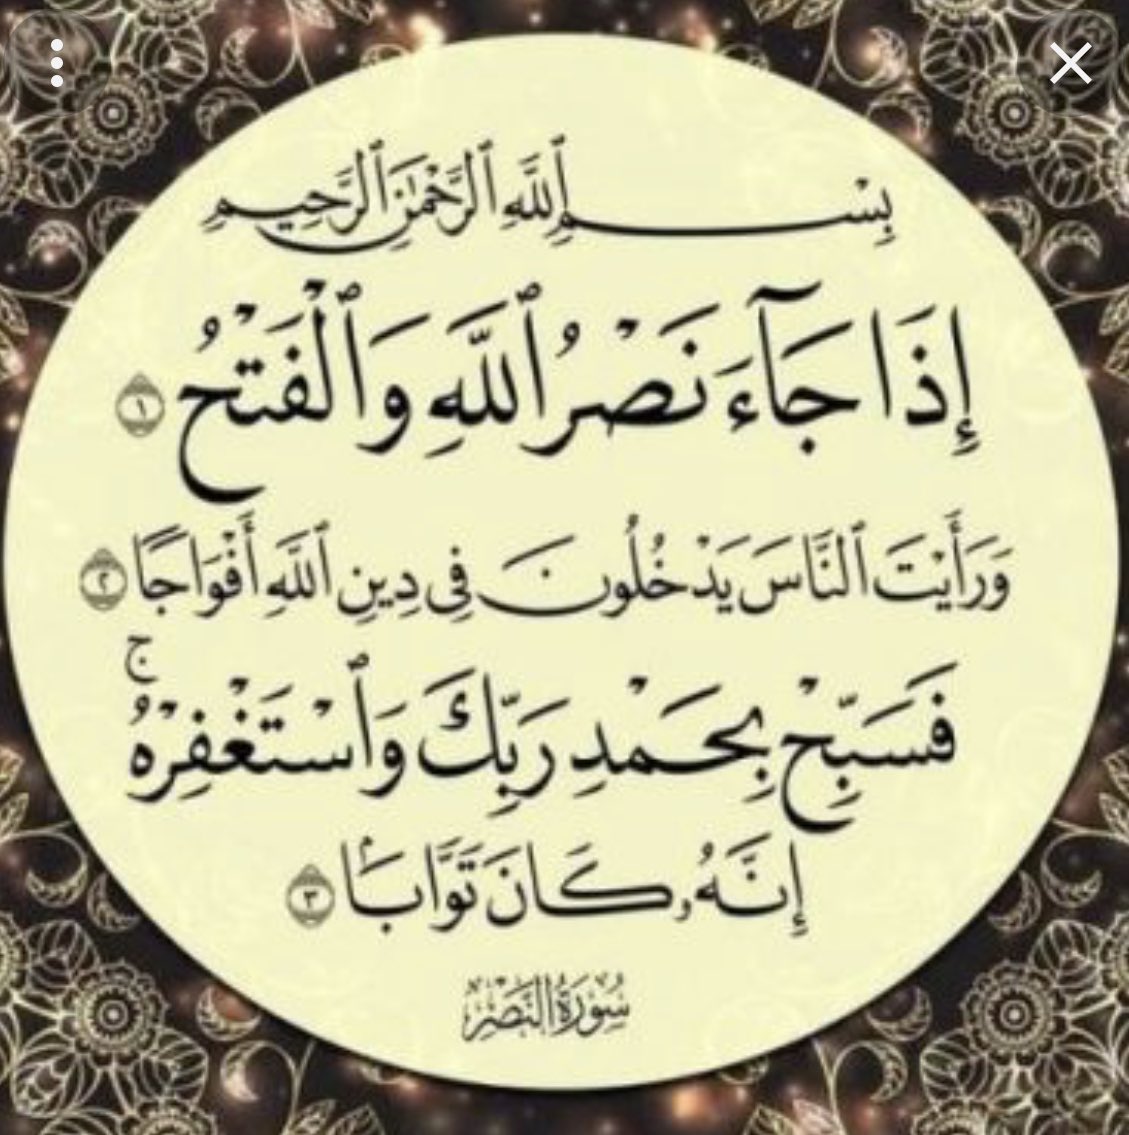 بِسْمِ ٱللَّهِ ٱلرَّحْمَٰنِ ٱلرَّحِيمِ
إِذَا جَآءَ نَصْرُ ٱللَّهِ وَٱلْفَتْحُ ١
وَرَأَيْتَ ٱلنَّاسَ يَدْخُلُونَ فِى دِينِ ٱللَّهِ أَفْوَاجًا ٢
فَسَبِّحْ بِحَمْدِ رَبِّكَ وَٱسْتَغْفِرْهُ ۚ
إِنَّهُۥ كَانَ تَوَّابَۢا ٣
سُورَةُ النَّصْرِ